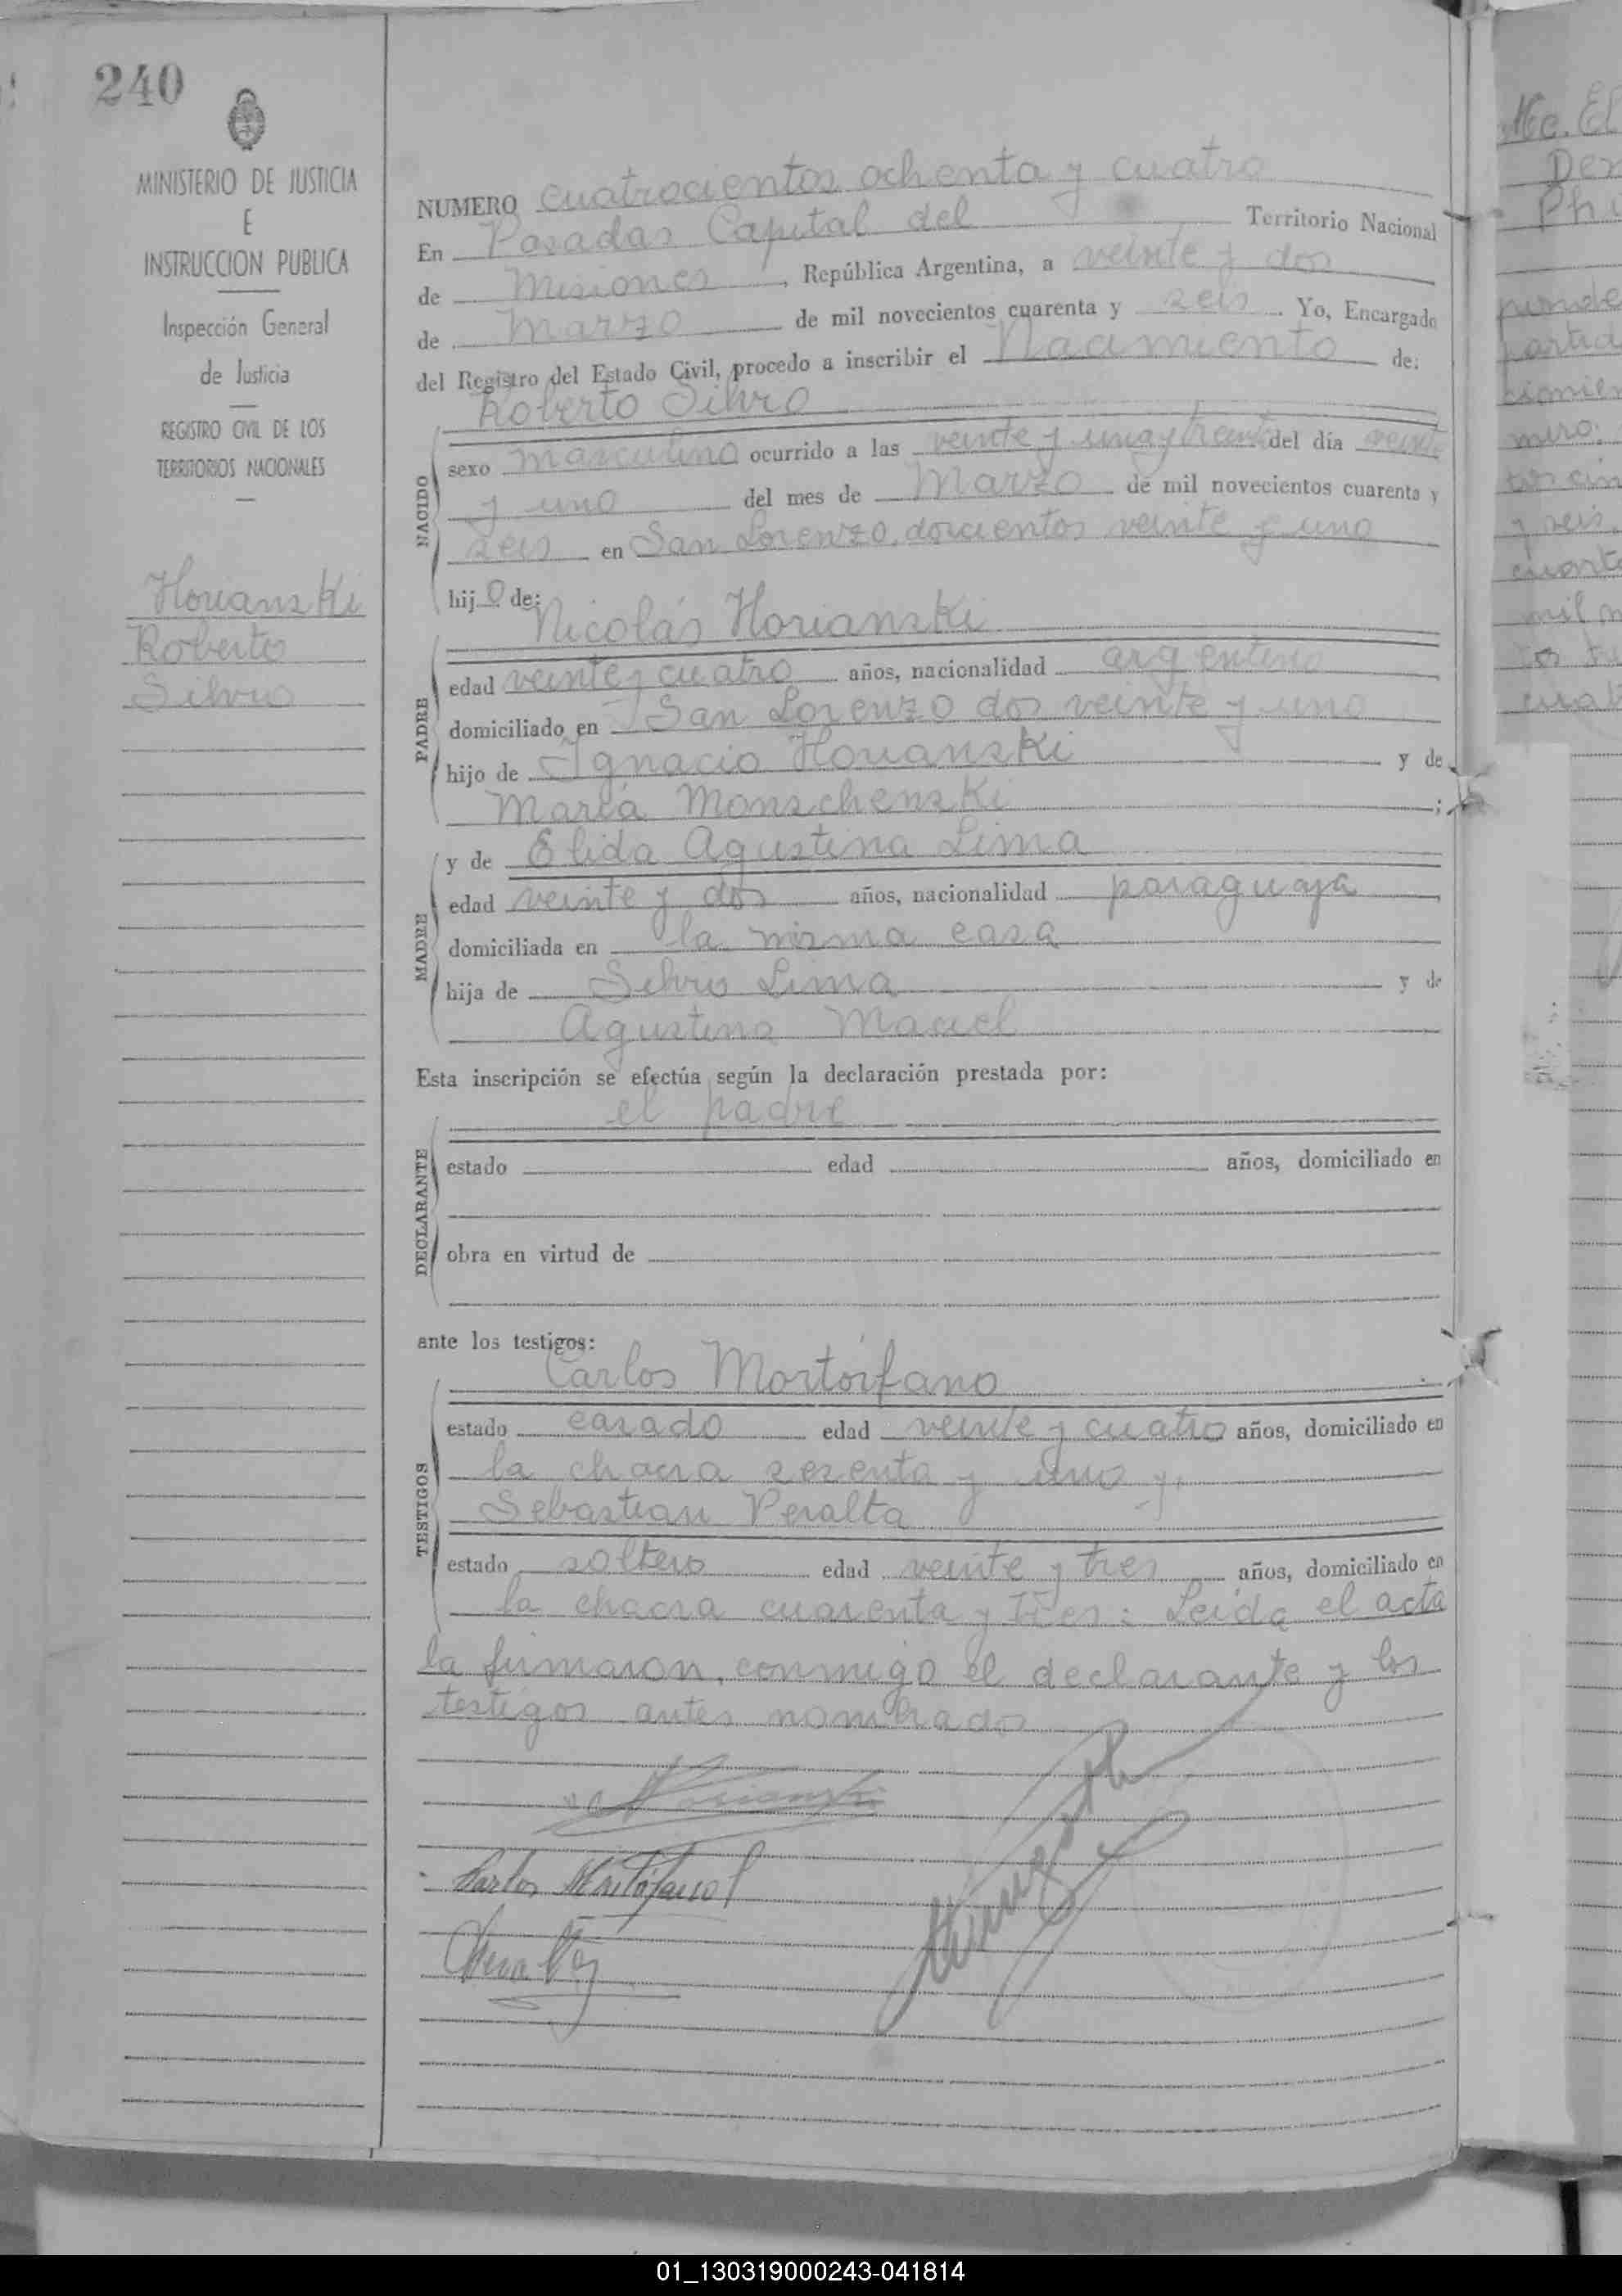 240
MINISTERIO DE JUSTICIA
E
INSTRUCCION PUBLICA
Inspección General
de Justicia
REGISTRO CIVIL DE LOS
TERRITORIOS NACIONALES
Horianski
Roberto
Silvio
NUMERO cuatrocientos ochenta y cuatro
En Posadas Capital del Territorio Nacional
de Misiones, República Argentina, a veinte y dos
de Marzo de mil novecientos cuarenta y seis. Yo, Encargado
del Registro del Estado Civil, procedo a inscribir el Nacimiento de:
Roberto Silvio
NACIDO
sexo masculino ocurrido a las veinte y una y treinta del día veinte
y uno del mes de Marzo de mil novecientos cuarenta y
seis en San Lorenzo, doscientos veinte y uno
hijo de:
Nicolás Horianski
PADRE
edad veinte y cuatro años, nacionalidad argentino
domiciliado en San Lorenzo dos veinte y uno
hijo de Ignacio Horianski y de
María Monschenski;
y de Elida Agustina Lima
MADRE
edad veinte y dos años, nacionalidad paraguaya
domiciliada en la misma casa
hija de Silvio Lima y de
Agustina Maciel
Esta inscripción se efectúa según la declaración prestada por:
el padre
DECLARANTE
estado edad años, domiciliado en
obra en virtud de
ante los testigos:
Carlos Mortórfano
TESTIGOS
estado casado edad veinte y cuatro años, domiciliado en
la chacra sesenta y uno y,
Sebastian Peralta
estado soltero edad veinte y tres años, domiciliado en
la chacra cuarenta y tres: Leída el acta
la firmaron, conmigo el declarante y los
testigos antes nombrados
Horianski
Carlos
Mc. El
Den
Phi
cimien
miro.
y seis
cuarto
mil n
01_130319000243-041814